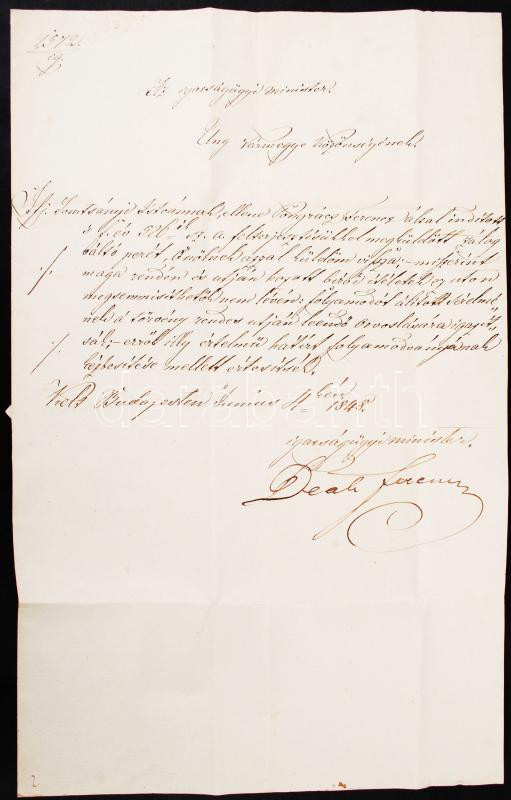 1572
Az igazságügyi minister.
Ung vármegye közönségének.
Ifj. Istvánnak, ellene Pongrácz Ferencz által inditott
f. év 926 ik sz. a. felterjesztésükkel megküldött zálog
váltó perét, Önöknek azzal küldöm vissza; miszerint
maga rendén és utján hozott birói itéletek ez uton
megsemmisithetők nem lévén: folyamodót állitott sérelmé-
nek a törvény rendes utján leendő orvoslására igazit-
sák; erről illy értelmű határt folyamodványának
kézbesitése mellett értesitsék.
Kelt Budapesten Junius 4 kén 1848.
igazságügyi minister.
Deák Ferencz
2
darabanth